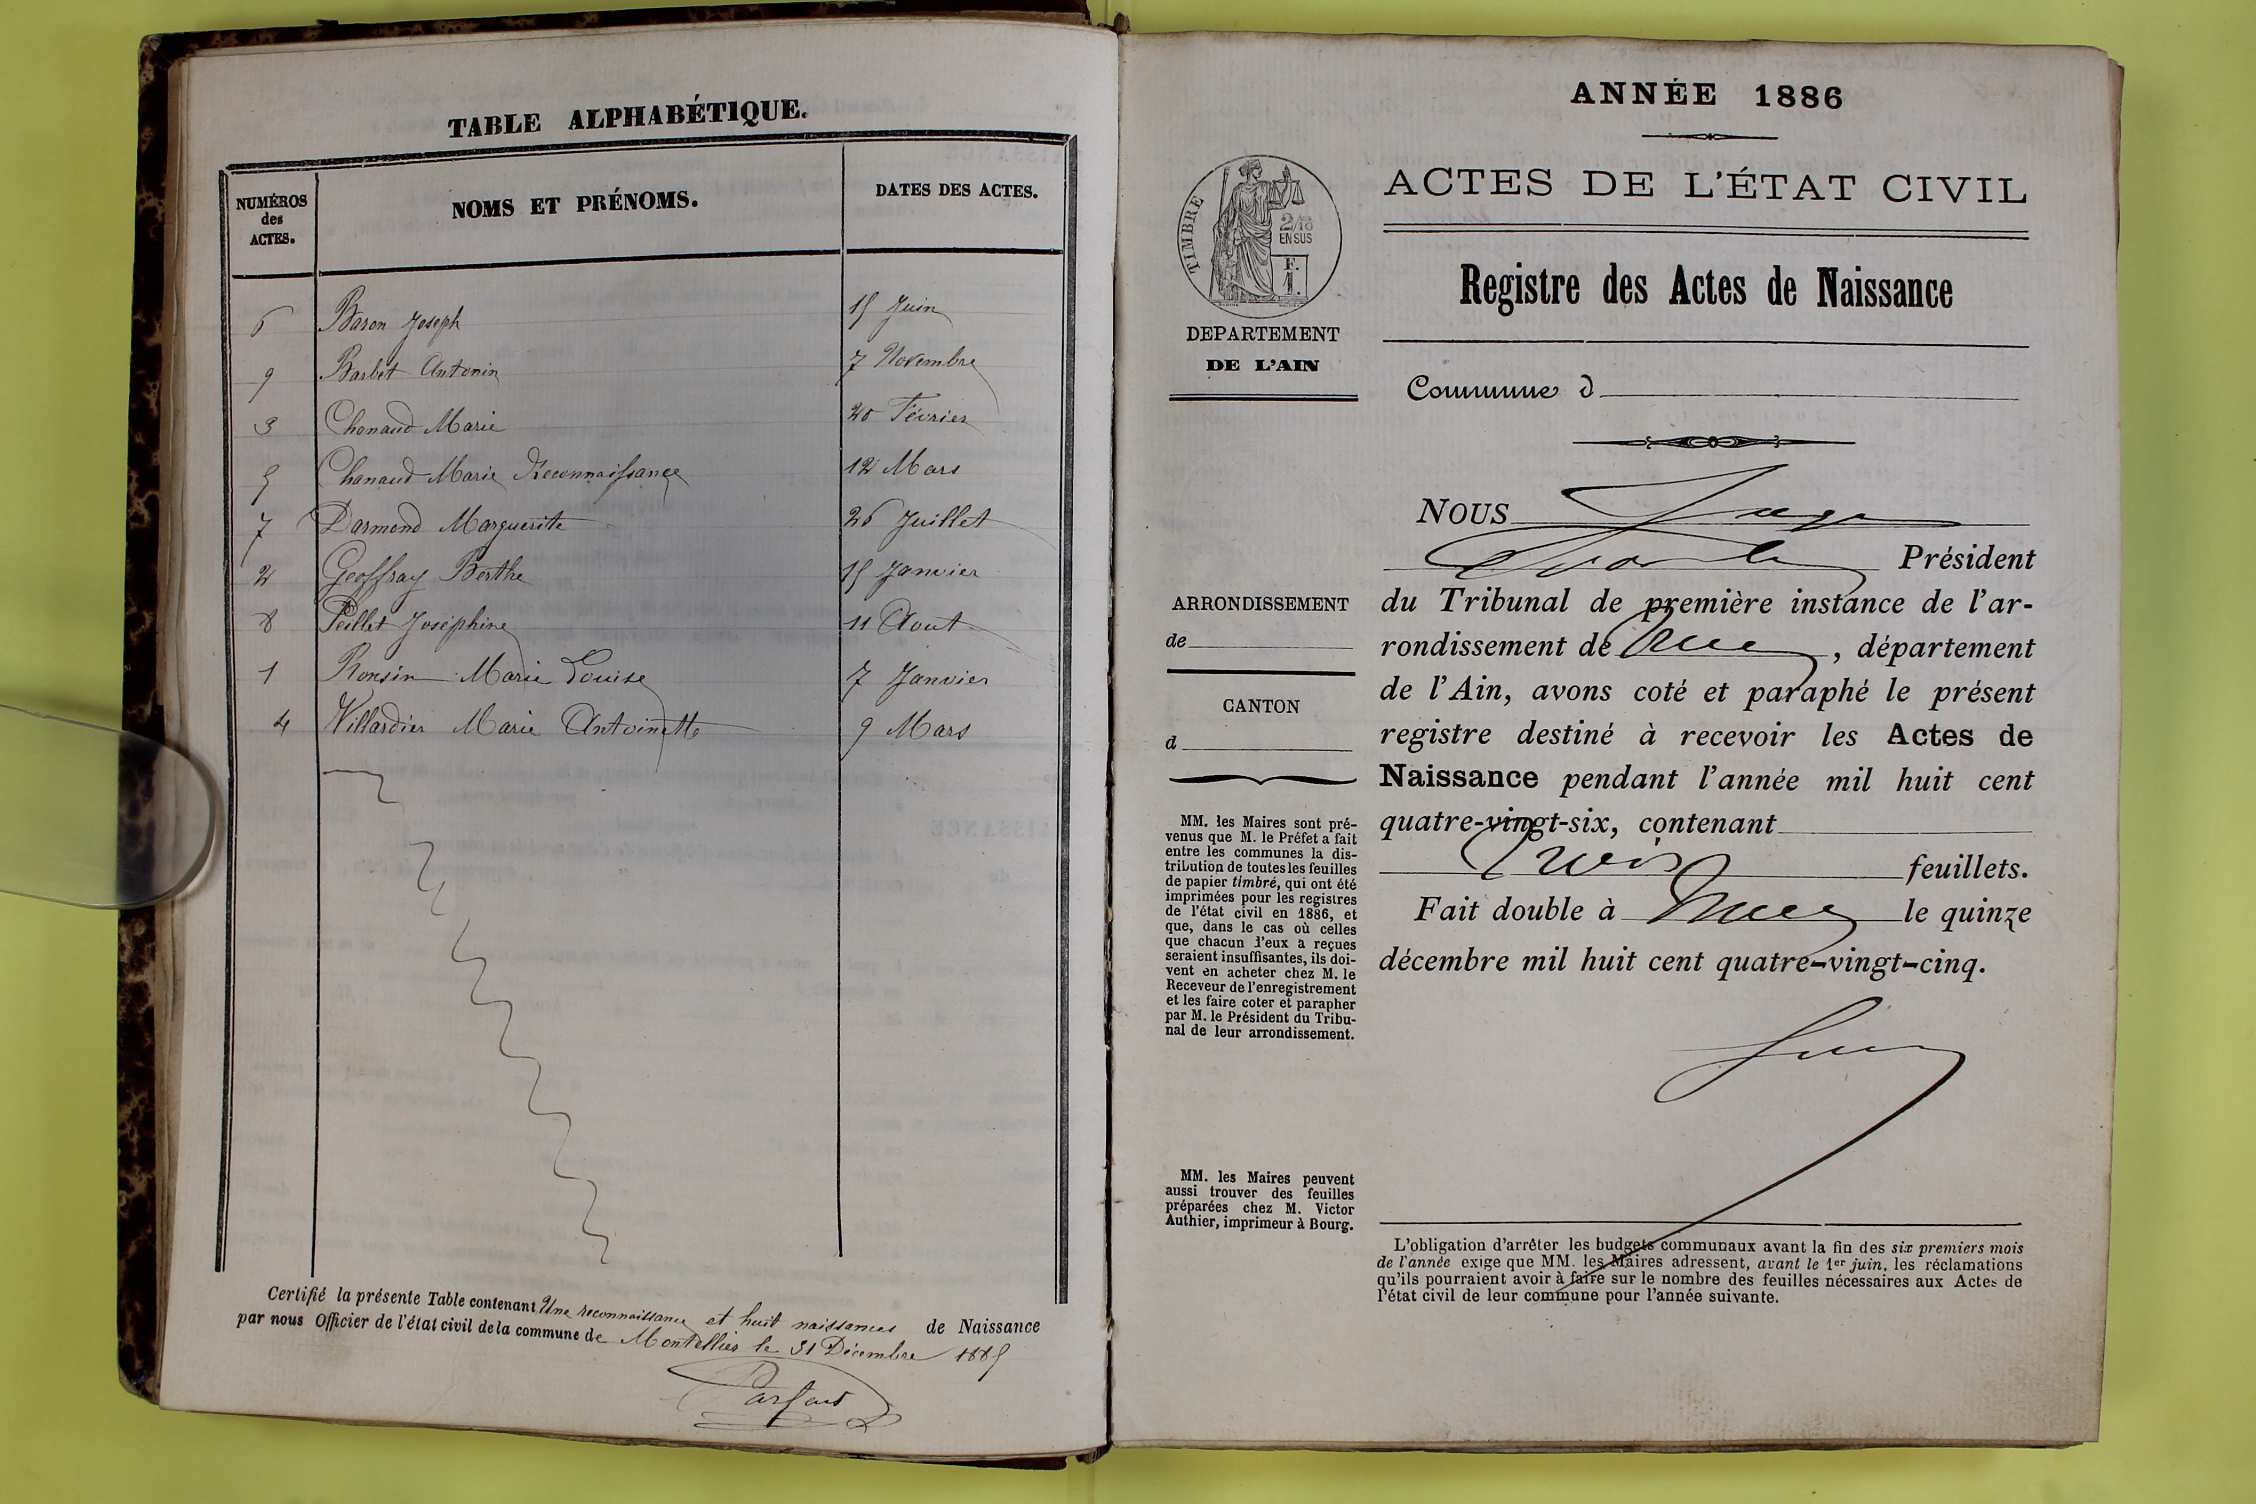 TABLE ALPHABÉTIQUE.
NUMÉROS
des
ACTES.
NOMS ET PRÉNOMS.
DATES DES ACTES.
6 Baron Joseph 15 Juin
9 Barbet Antonin 7 Novembre
3 Chanaud Marie 20 Février
5 Chanaud Marie Reconnaissance 12 Mars
7 Darmond Marguerite 26 Juillet
2 Geoffray Berthe 15 Janvier
8 Peillet Joséphine 11 Aout
1 Ronsin Marie Louise 7 Janvier
4 Villardier Marie Antoinette 9 Mars
Certifié la présente Table contenant Une reconnaissance et huit naissances de Naissance
par nous Officier de l'état civil de la commune de Montellier le 31 Décembre 1885
ANNÉE 1886
ACTES DE L'ÉTAT CIVIL
Registre des Actes de Naissance
Commune d
TIMBRE
2/10
EN SUS
F.
1.
DEPARTEMENT
DE L'AIN
ARRONDISSEMENT
de
CANTON
d
MM. les Maires sont pré-
venus que M. le Préfet a fait
entre les communes la dis-
tribution de toutes les feuilles
de papier timbré, qui ont été
imprimées pour les registres
de l'état civil en 1886, et
que, dans le cas où celles
que chacun d'eux a reçues
seraient insuffisantes, ils doi-
vent en acheter chez M. le
Receveur de l'enregistrement
et les faire coter et parapher
par M. le Président du Tribu-
nal de leur arrondissement.
MM. les Maires peuvent
aussi trouver des feuilles
préparées chez M. Victor
Authier, imprimeur à Bourg.
NOUS Juge
Président
du Tribunal de première instance de l'ar-
rondissement de , département
de l'Ain, avons coté et paraphé le présent
registre destiné à recevoir les Actes de
Naissance pendant l'année mil huit cent
quatre-vingt-six, contenant
Trois feuillets.
Fait double à le quinze
décembre mil huit cent quatre-vingt-cinq.
L'obligation d'arrêter les budgets communaux avant la fin des six premiers mois
de l'année exige que MM. les Maires adressent, avant le 1er juin, les réclamations
qu'ils pourraient avoir à faire sur le nombre des feuilles nécessaires aux Actes de
l'état civil de leur commune pour l'année suivante.